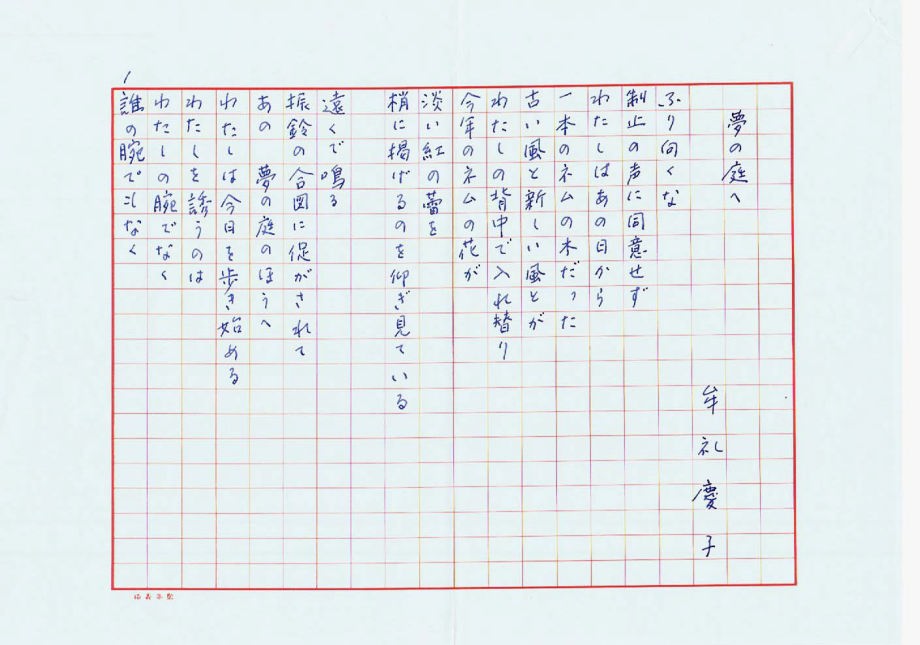 夢の庭へ
牟礼慶子
ふり向くな
制止の声に同意せず
わたしはあの日から
一本のネムの木だった
古い風と新しい風とが
わたしの背中で入れ替り
今年のネムの花が
淡い紅の蕾を
梢に掲げるのを仰ぎ見ている
遠くで鳴る
振鈴の合図に促がされて
あの 夢の庭のほうへ
わたしは今日を歩き始める
わたしを誘うのは
わたしの腕でなく
誰の腕でもなく
1